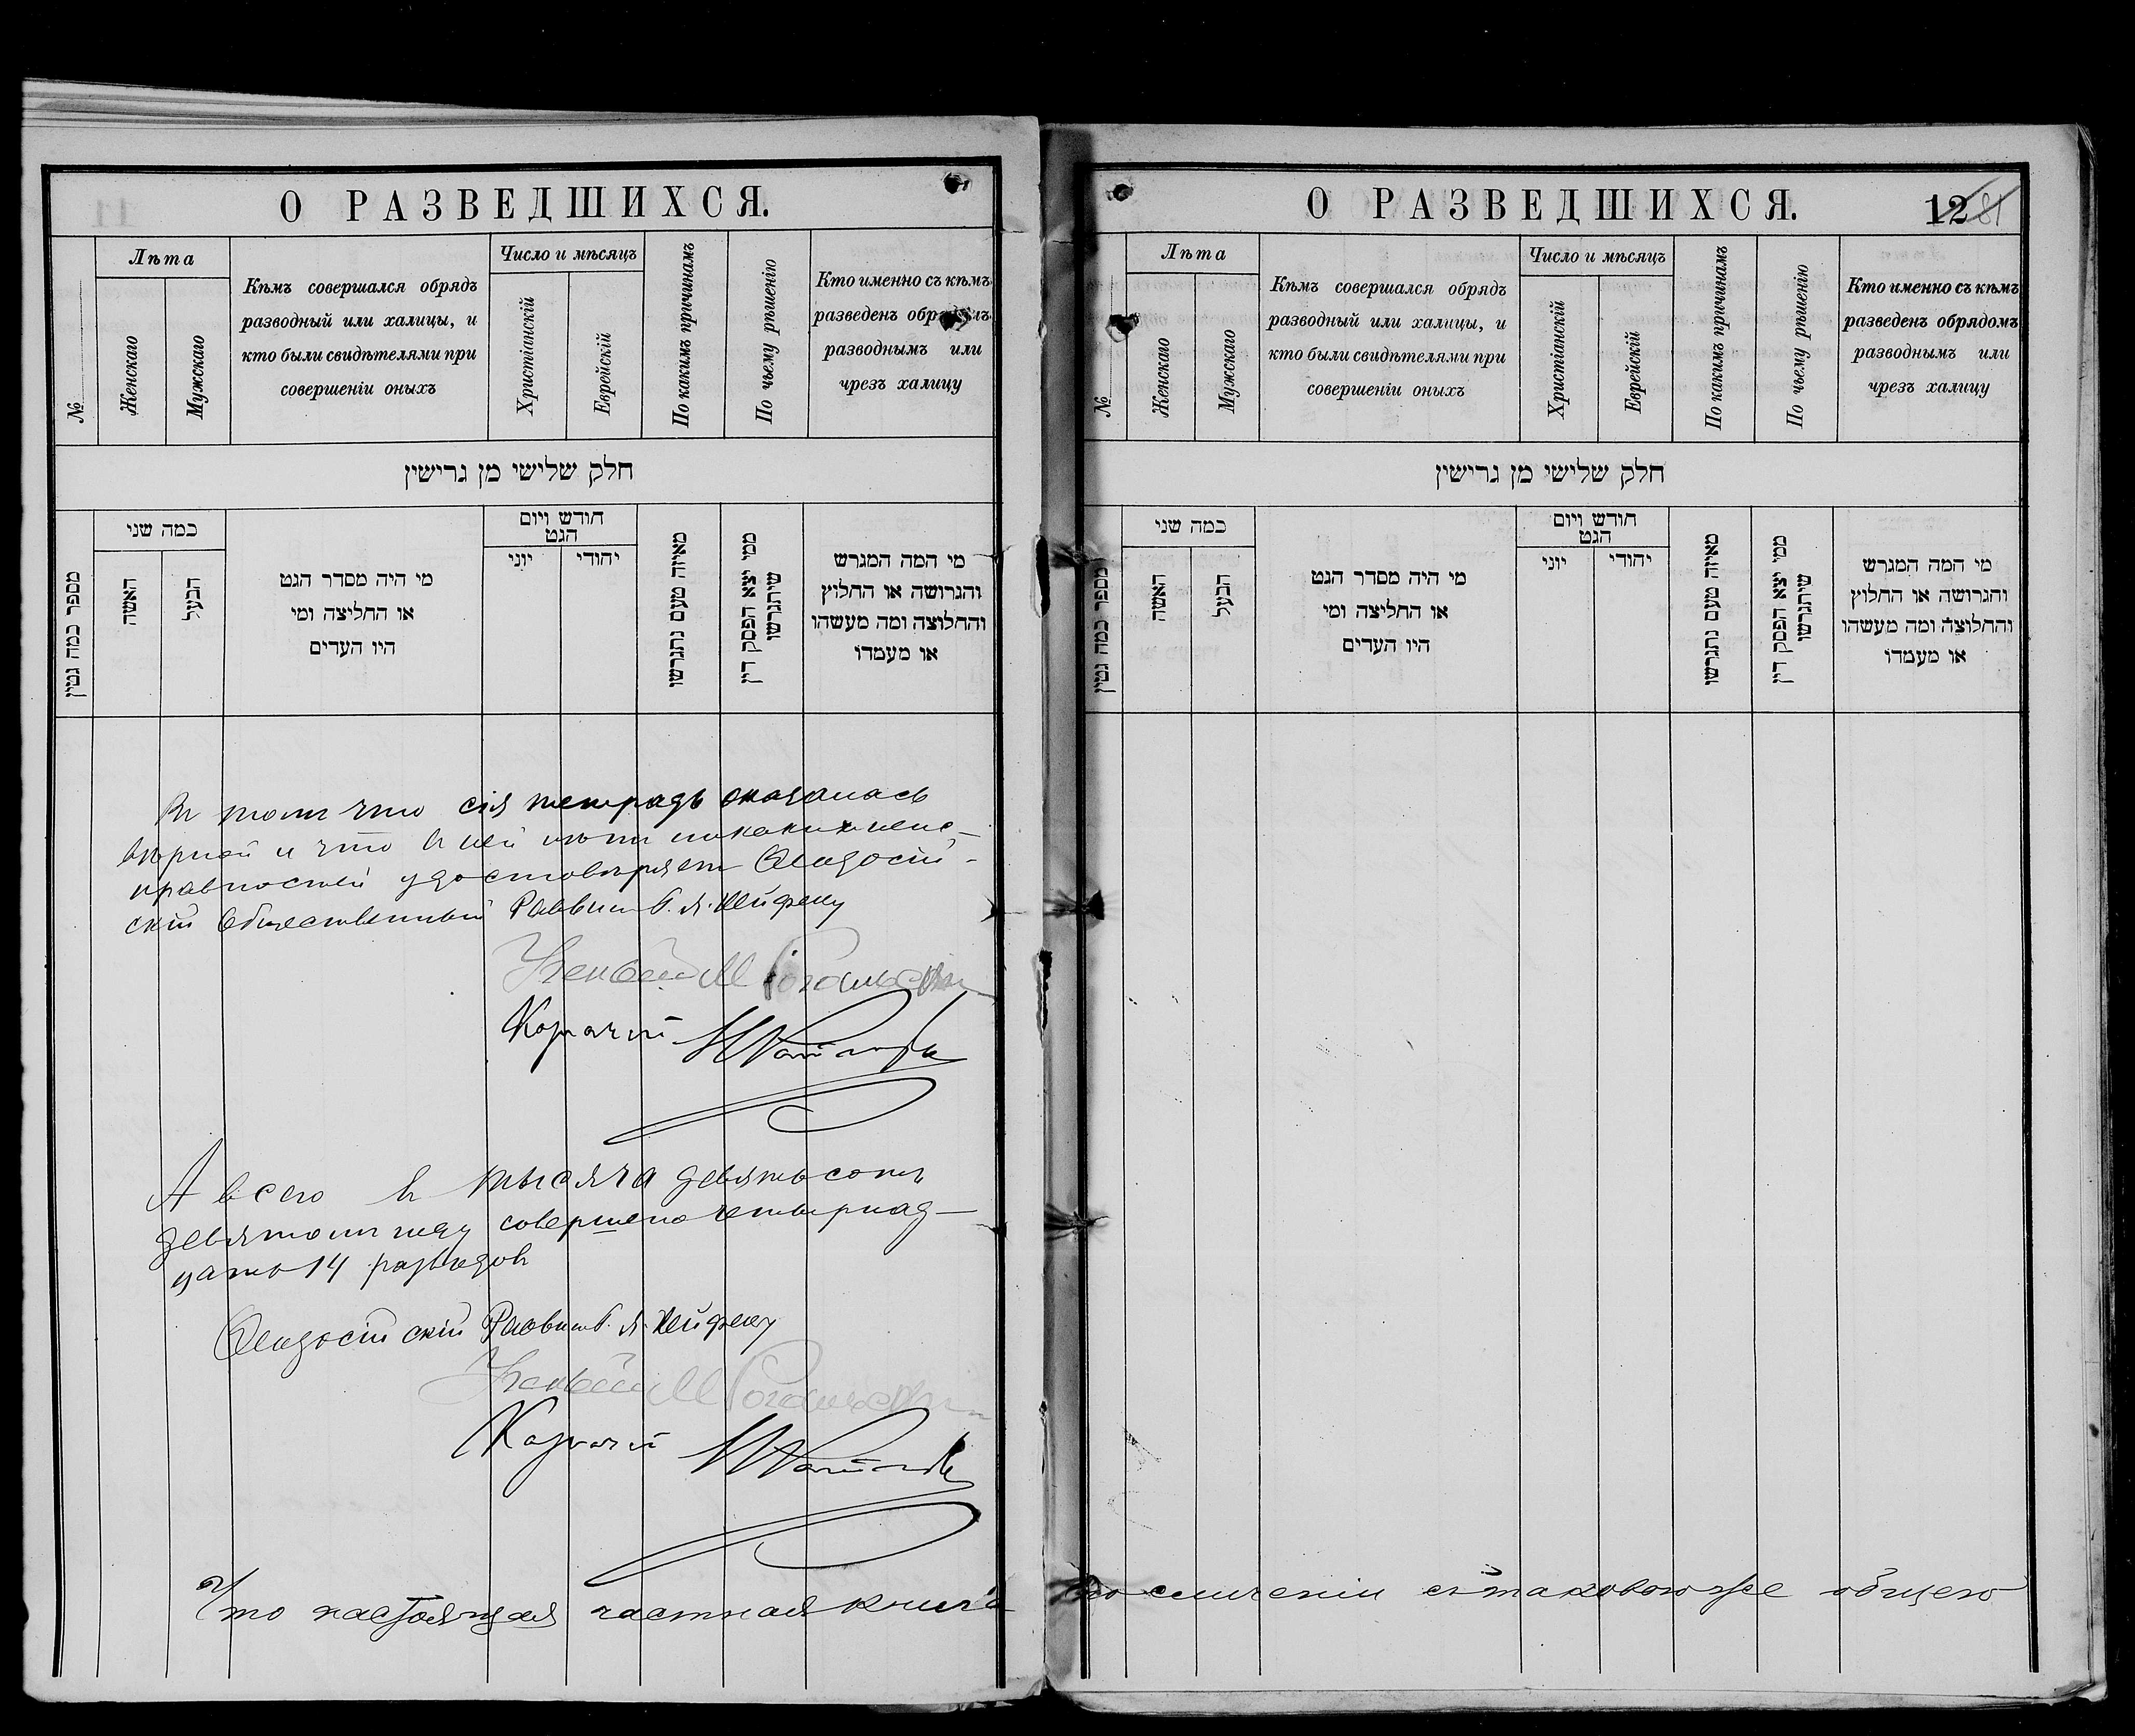 О РАЗВЕДШИХСЯ.
№
Лѣта
Женскаго
Мужскаго
Кѣмъ совершался обрядъ
разводный или халицы, и
кто были свидѣтелями при
совершеніи оныхъ
Число и мѣсяцъ
Христіанскій
Еврейскій
По какимъ причинамъ
По чьему рѣшенію
Кто именно съ кѣмъ
разведенъ обрядомъ
разводнымъ или
чрезъ халицу
חלק שלישי מן גרישין
מספר כמה גטין
כמה שני
האשה
הבעל
מי היה מסדר הגט
או החליצה ומי
היו העדים
חודש ויום
הגט
יוני
יהודי
מאיזה טעם נתגרשו
ממי יצא הפסק דין
שיתגרשו
מי המה המגרש
והגרושה או החלוץ
והחלוצה ומה מעשהו
או מעמדו
Въ томъ что сія тетрадь оказалась
вѣрной и что въ ней нѣтъ никакихъ неис-
правностей удостовѣряетъ
скій Общественный Раввинъ
Казначей
А всего въ тысяча девятьсотъ
девятомъ году совершено четырнад-
цать 14 разводовъ
скій Раввинъ
Казначей
Что настоящая частная книга
О РАЗВЕДШИХСЯ.
12
81
№
Лѣта
Женскаго
Мужскаго
Кѣмъ совершался обрядъ
разводный или халицы, и
кто были свидѣтелями при
совершеніи оныхъ
Число и мѣсяцъ
Христіанскій
Еврейскій
По какимъ причинамъ
По чьему рѣшенію
Кто именно съ кѣмъ
разведенъ обрядомъ
разводнымъ или
чрезъ халицу
חלק שלישי מן גרישין
מספר כמה גטין
כמה שני
האשה
הבעל
מי היה מסדר הגט
או החליצה ומי
היו העדים
חודש ויום
הגט
יוני
יהודי
מאיזה טעם נתגרשו
ממי יצא הפסק דין
שיתגרשו
מי המה המגרש
והגרושה או החלוץ
והחלוצה ומה מעשהו
או מעמדו
по сличеніи съ таковою же общею